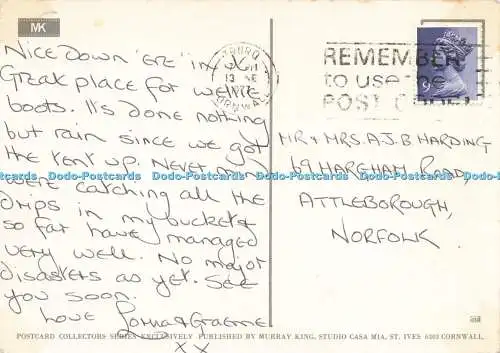 MK
NICE DOWN 'ERE" IN
GREAT PLACE FOR WELLIE
BOOTS. IT'S DONE NOTHING
BUT RAIN SINCE WE GOT
THE TENT UP. NEVER
WE'RE CATCHING ALL THE
DRIPS IN MY BUCKET &
SO FAR HAVE MANAGED
VERY WELL. NO MAJOR
DISASTERS AS YET. SEE
YOU SOON.
LOVE Lorna & Graeme
XX
CORNWALL
REMEMBER
to use the
POST CODE!
9P
MR & MRS. A.J.B HARDING
49 HARGHAM ROAD,
ATTLEBOROUGH,
NORFOLK.
Dodo-Postcards Dodo-Postcards Dodo-Postcards Dodo-Postcards Dodo-Postcards
POSTCARD COLLECTORS SERIES EXCLUSIVELY PUBLISHED BY MURRAY KING, STUDIO CASA MIA, ST. IVES 6303 CORNWALL.